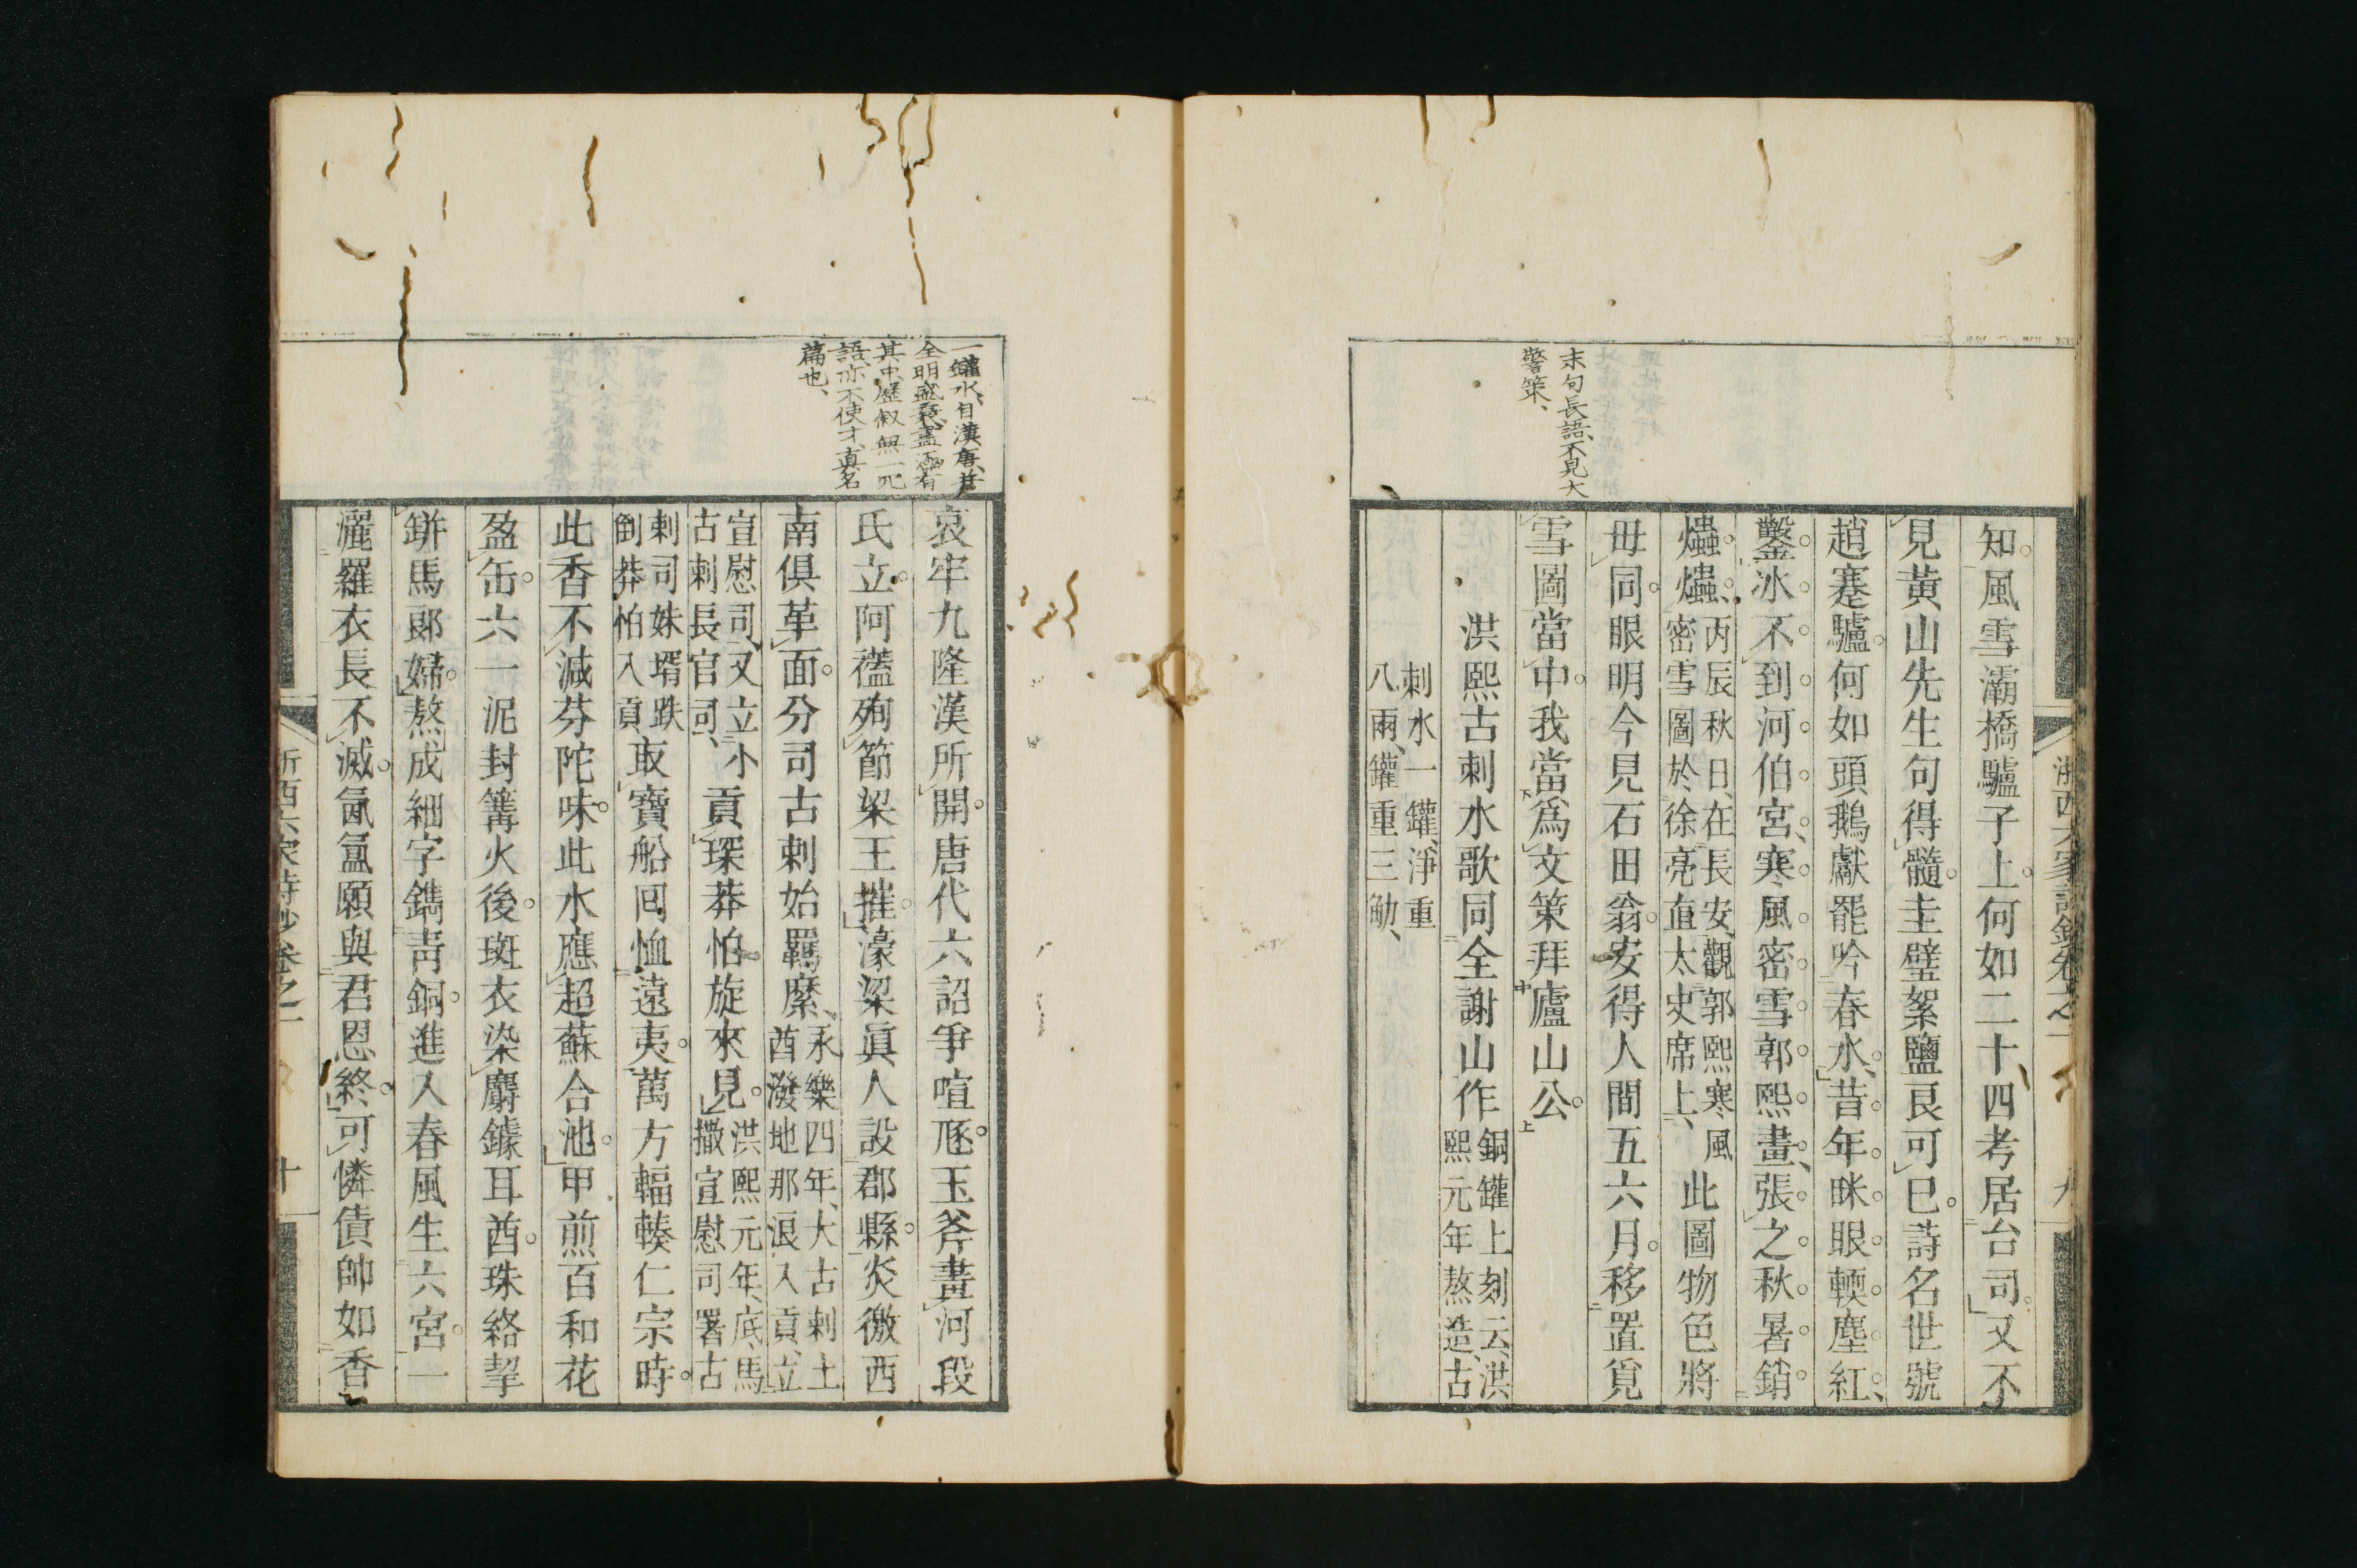 末句長語、不見大
警策、
知風雪灞橋驢子上。何如二十四考居台司。又不
見黄山先生句得髓。圭璧絮鹽良可已。詩名世號
趙蹇驢。何如頭鵝獻罷吟春水。昔年眯眼輭塵紅、
鑿冰不到河伯宮、寒風密雪郭熙畫、張之秋暑銷
爞爞、
丙辰秋日、在長安、觀郭熙寒風
密雪圖於徐亮直太史席上、
此圖物色將
毋同。眼明今見石田翁。安得人間五六月。移置覓
雪圖當中。我當爲文策拜廬山公。
洪熙古剌水歌同全謝山作
銅罐上刻云、洪
熙元年熬造、古
剌水一罐、淨重
八兩、罐重三觔、
浙西六家詩鈔卷之一
九
一罐水、自漢唐、并
全明盛衰、蓋極有
其中、歷叙無一冗
語、亦不使才、真名
篇也、
哀牢九隆漢所開。唐代六詔爭喧豗。玉斧畫河段
氏立。阿𧜵殉節梁王摧。濠梁眞人設郡縣。炎徼西
南俱革面。分司古剌始羈縻、
永樂四年、大古剌土
酋潑地那浪入貢、立
宣慰司、又立小
古剌長官司、
貢琛莽怕旋來見。
洪熙元年、底馬
撒宣慰司署古
剌司妹壻跌
倒莽怕入貢、
取寶船回恤遠夷。萬方輻輳仁宗時。
此香不減芬陀味。此水應超蘇合池。甲煎百和花
盈缶。六一泥封篝火後。斑衣染麝鐻耳酋。珠絡挈
缾馬郞婦。熬成細字鐫靑銅。進入春風生六宮。一
灑羅衣長不滅。氤氳願與君恩終。可憐債帥如香
浙西六家詩鈔卷之一
十